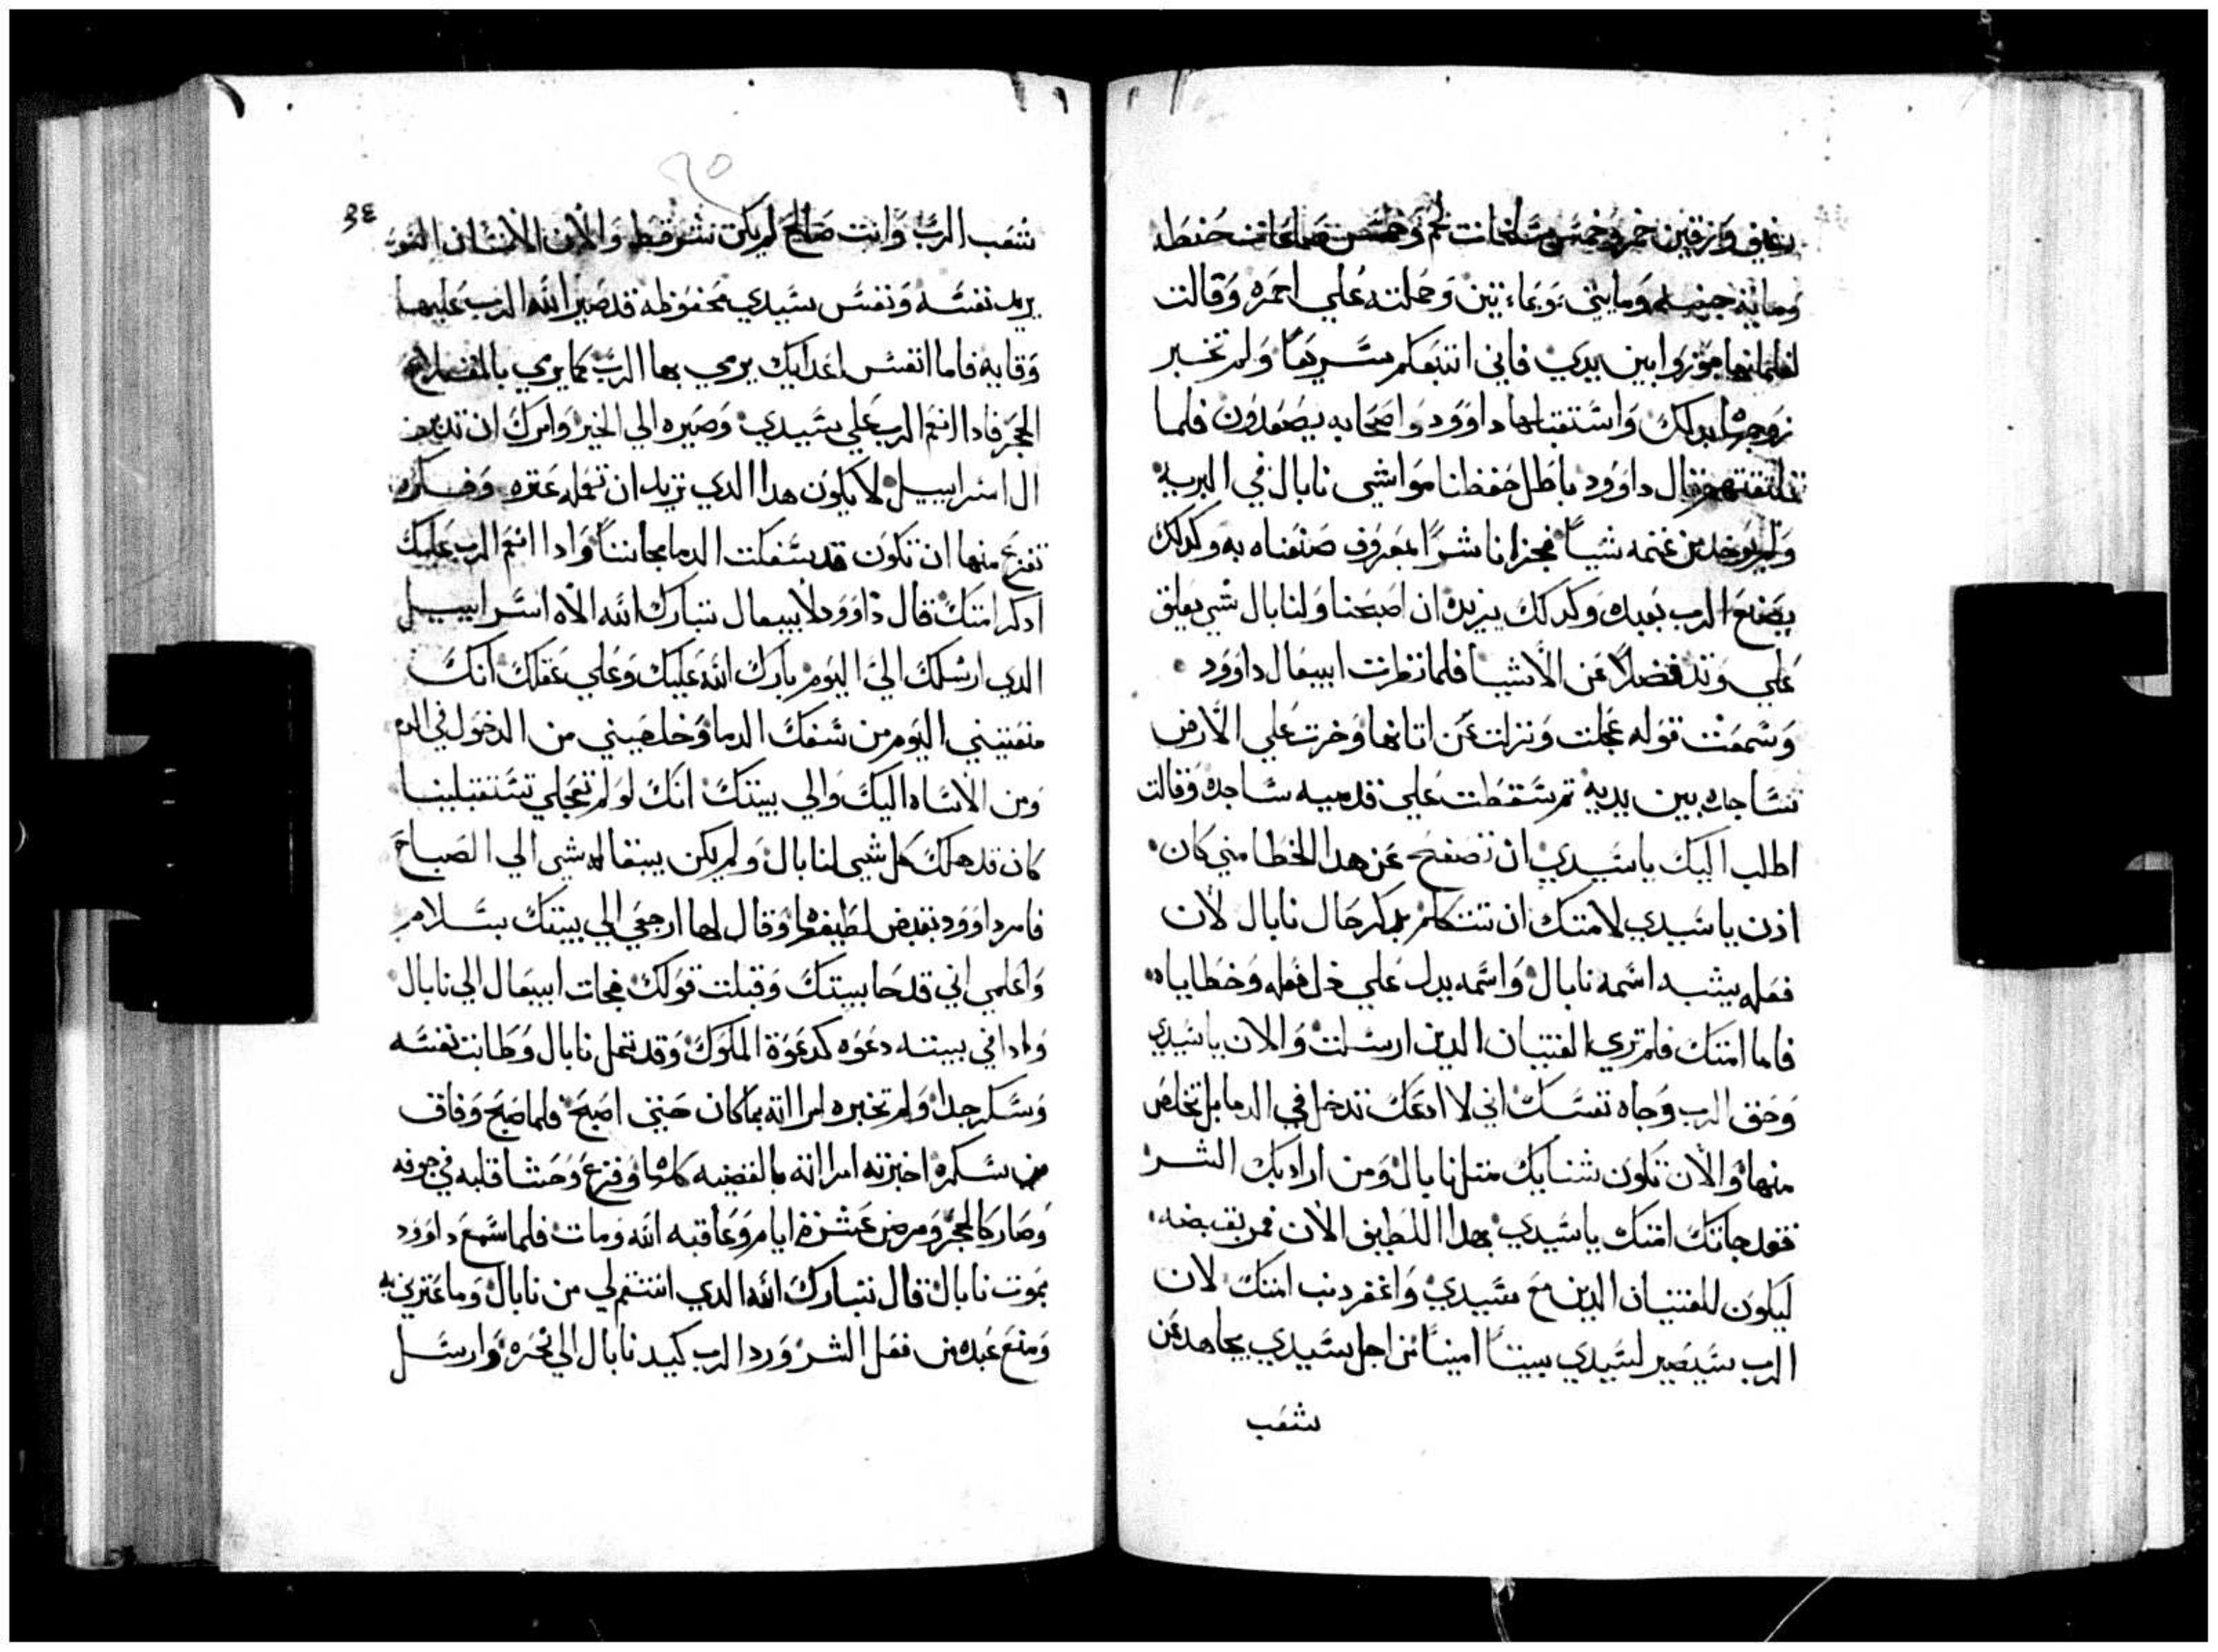 رغيف وازقين خمر وخمس مسلخات لحم وخمس صاعات حنطه
ومايه جبنه ومايتي وعاء تين وحملته علي احمره وقالت
لغلمانها جوزوا بين يدي فاني اتبعكم سريعًا ولم تخبر
زوجها بدلك واستقبلها داوود واصحابه يصعدون فلما
تلقتهم قال داوود باطل حفظنا مواشي نابال في البريه
ولم يوخد من غنمه شياً فجزانا شرًا لمعروف صنعناه به وكدلك
يصنع الرب بعبده وكدلك يزيده ان اصبحنا ولنابال شي يعلق
علي وتد فضلاً عن الاشيا فلما نظرت ابيغال داوود
وسمعت قوله عجلت ونزلت عن اتانها وخرت علي الارض
ساجده بين يديه تم سقطت علي قدميه ساجده وقالت
اطلب اليك ياسيدي ان تصفح عن هدا الخطا مني كان
ادن يا سيدي لامتك ان تتكلم بدكر حال نابال لان
فعله يشبه اسمه نابال واسمه يدل علي فعله وخطاياه
فاما امتك فلم تري الفتيان الدين ارسلت والان ياسيدي
وحق الرب وجاه نفسك اني لا ادعك تدخل في الدما بل تخلص
منها والان تكون شنايك متل نابال ومن اراد بك الشر
فقد جاتك امتك ياسيدي بهدا اللطايف الان فمر بقبضه
ليكون للفتيان الدين مع سيدي واغفر دنب امتك لان
الرب سيصير لسيدي بيتاً امينًا من اجل سيدي يجاهد عن
شعب
٣٤
شعب الرب وانت صالح لم يكن شر قط والان الانسان
يريد نفسه ونفس سيدي محفوظه قد صير الله الرب عليها
وقايه فاما انفس اعدايك يرمي بها الرب كما يرمي بالمقلاع
الحجر فادا انعم الرب علي سيدي وصيره الي الخير وامرك ان تدبر
ال اسراييل لا يكون هدا الدي تريد ان تعمله عتره وفكره
تفزع منها ان تكون قد سفكت الدما مجاننًا وادا انعم الرب عليك
ادكر امتك قال داوود لابيغال تبارك الله الاه اسراييل
الدي ارسلك الي اليوم بارك الله عليك وعلي عقلك انك
منعتيني اليوم من سفك الدما وخلصيني من الدخول في الدم
ومن الاساه اليك والي بيتك انك لو لم تعجلي تستقبلينا
كان قد هلك كل شي لنابال ولم يكن يبقا له شي الي الصباح
فامر داوود بقبض لطيفها وقال لها ارجعي الي بيتك بسلام
واعلمي اني قد حابيتك وقبلت قولك فجات ابيغال الي نابال
وادا في بيته دعوه كدعوة الملوك وقد تمل نابال وطابت نفسه
وسكر جدا ولم تخبره امراته بما كان حتي اصبح فلما صبح وفاق
من سكره اخبرته امراته بالقضيه كلها وفزع وحشا قلبه في جوفه
وصار كالحجر ومرض عشرة ايام وعاقبه الله ومات فلما سمع داوود
بموت نابال قال تبارك الله الدي انتقم لي من نابال وما عيرني به
ومنع عبده من فعل الشر ورد الرب كيد نابال الي نحره وارسل